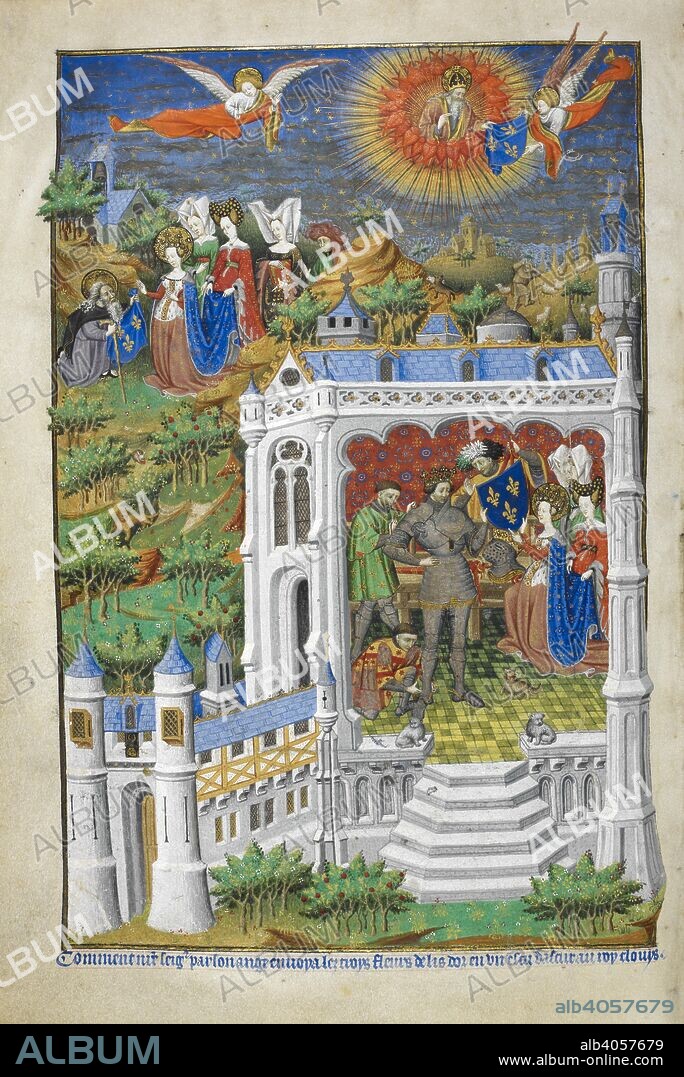 Comment nr̃e seigr̃ par son ange envoya les troys fleurs de lis dor en un escu dasur au roy clovys.
alb4057679
ALBUM
alb4057679
www.album-online.com